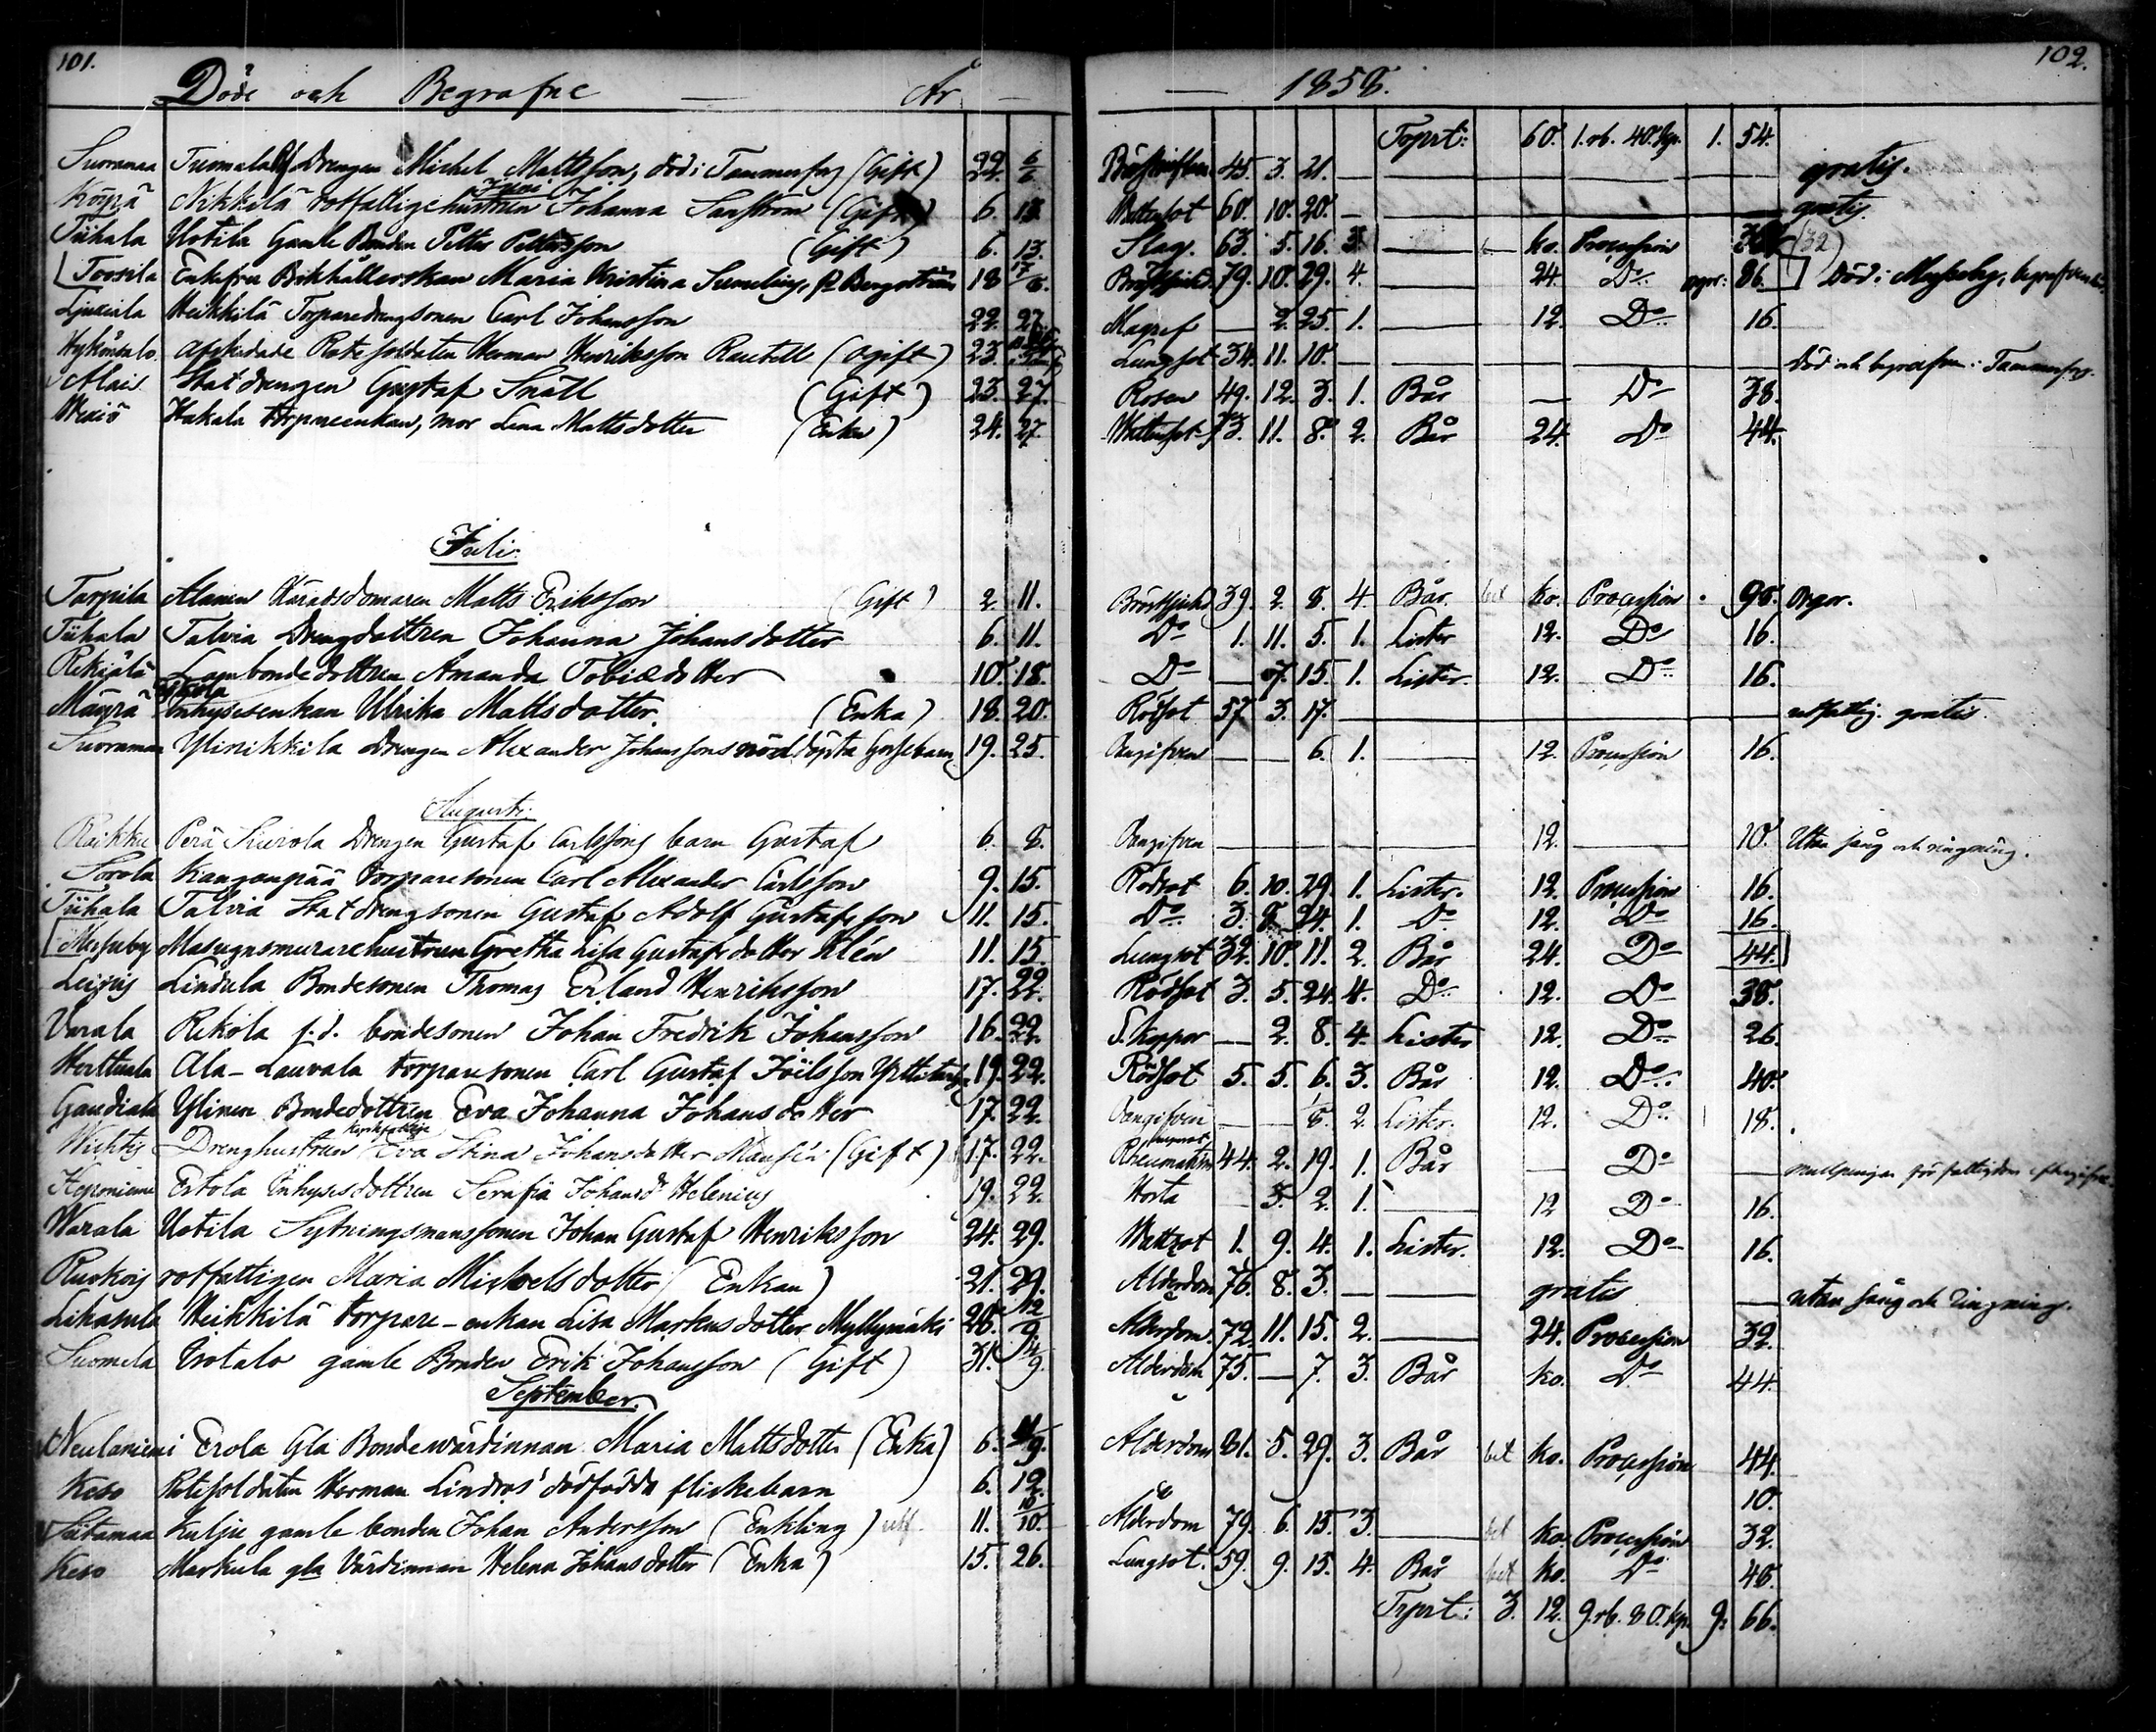 101. 102.
Döde och Begrafne — År — — 1858.
Trprt: 60. 1. rb. 40. kp. 1. 54.
Suoramaa Tuomela Drengen Michel Mattsson, död i Tammerfors (Gift) 22. 6/6 45. 3. 21. gratis.
Körpä Nikkilä rotfattige hustrun Johanna Sanström (Gift) 6. 13. Wattusot 60. 10. 20. gratis.
Juni
Tiihala Uotila Gamle Bonden Petter Pettersson (Gift) 6. 13. Slag. 63. 5. 16. 3. ko. Procession (32)
Toosila Enkefru Bokhållerskan Maria Kristina Sumelius, f. Bergström 18 17/8. Bröstsjukd. 79. 10. 29. 4. 24. Do orgor: 86. Död i Messuby, begrafven
Ljuxiala Heikkilä Torparedrengsonen Carl Johansson 22. 27. Magref — 2. 25. 1. 12. Do 16.
afskedade Rotesoldaten Herman Henriksson Rautell (ogift) 23. Lungsot 34. 11. 10. död och begrafven i Tammerfors.
Alais Statdrengen Gustaf Snäll (Gift) 23. 27. Rosen 49. 12. 3. 1. Bår — Do 38.
Wexiö Hakala torpareenkan, mor Lena Mattsdotter (Enka) 24. 27. Wattusot 73. 11. 8. 2. Bår 24. Do 44.
Juli.
Tarpila Alanen Häradsdomaren Matts Eriksson (Gift) 2. 11. Bröstsjukd 39. 2. 8. 4. Bår. bet ko. Procession 98. orgor.
Tiihala Talvia Drengdottren Johanna Johansdotter 6. 11. Do 1. 11. 5. 1. Lister 12. Do 16.
Rekiälä Lambondedottren Amanda Tobiædotter 10. 18. Do — 7. 15. 1. Lister. 12. Do 16.
Mäyrä Inhysesenkan Ulrika Mattsdotter. (Enka) 18. 20. Rödsot 57. 3. 17. rotfattig. gratis.
Suoramaa Ylinikkilä drengen Alexander Johanssons nöddöpta Gossebarn 19. 25. Oangifven — — 6. 1. 12. Procession 16.
Augusti.
Raikku Perä Siurola Drengen Gustaf Carlssons barn Gustaf 6. 8. Oangifven 12. 10. Utan sång och ringning.
Sorola Kangonpää torparesonen Carl Alexander Carlsson 9. 15. Rödsot 6. 10. 29. 1. Lister. 12. Procession 16.
Tiihala Talvia Statdrengsonen Gustaf Adolf Gustafsson 11. 15. Do 3. 8. 24. 1. Do 12. Do 16.
Messuby Masugnsmurarehustrun Gretha Lisa Gustafsdotter Klén 11. 15. Lungsot 32. 10. 11. 2. Bår 24. Do 44.
Leipis Lindula Bondesonen Thomas Erland Henriksson 17. 22. Rödsot 3. 5. 24. 4. Do 12. Do 38.
Varala Rekola f.d. bondesonen Johan Fredrik Johansson 16. 22. S. koppor — 2. 8. 4. Lister 12. Do 26.
Herttuala Ala-Lauvala torparesonen Carl Gustaf Joilsson 19. 22. Rödsot 5. 5. 6. 3. Bår 12. Do 40.
Gaudiala Ylinen Bondedottren Eva Johanna Johansdotter 17. 22. Oangifven — — 8. 2. Lister. 12. Do 18.
Wichtis Drenghustrun Eva Stina Johansdotter (Gift) 17. 22. Rheumatism 44. 2. 19. 1. Bår — Do —
Keponiemi Ertola Inhysesdottren Serafia Johansd. Helenius 19. 22. Hosta — 3. 2. 1. 12 Do 16.
Warala Uotila Sytningsmanssonen Johan Gustaf Henriksson 24. 29. Wattsot 1. 9. 4. 1. Lister. 12. Do 16.
rotfattigen Maria Michelsdotter (Enkan) 21. 29. Ålderdom 76. 8. 3. gratis — utan sång och Ringning.
Lihasula Heikkilä torpare-enkan Lisa Markusdotter Myllymäki 28. 12/9. Ålderdom. 72. 11. 15. 2. 24. Procession 32.
Suomela Isotalo gamle Bonden Erik Johansson (Gift) 31. Ålderdom 75. — 7. 3. Bår ko. Do 44.
September.
Neulaniemi Erola Gla Bondewärdinnan Maria Mattsdotter (Enka) 6. Ålderdom 81. 5. 29. 3. Bår bet ko. Procession 44.
Keso Rotesoldaten Herman Lindros' dödfödda flickebarn 6. 12. 10.
Satamaa Kulju gamle bonden Johan Andersson (Enkling) 11. 10/10. Ålderdom 79. 6. 15. 3. bet ko. Procession 32.
Keso Markula gla Värdinnan Helena Johansdotter (Enka) 15. 26. Lungsot. 59. 9. 15. 4. Bår bet ko. Do 48.
Trprt: 3. 12. 9. rb. 80. kp. 9. 66.